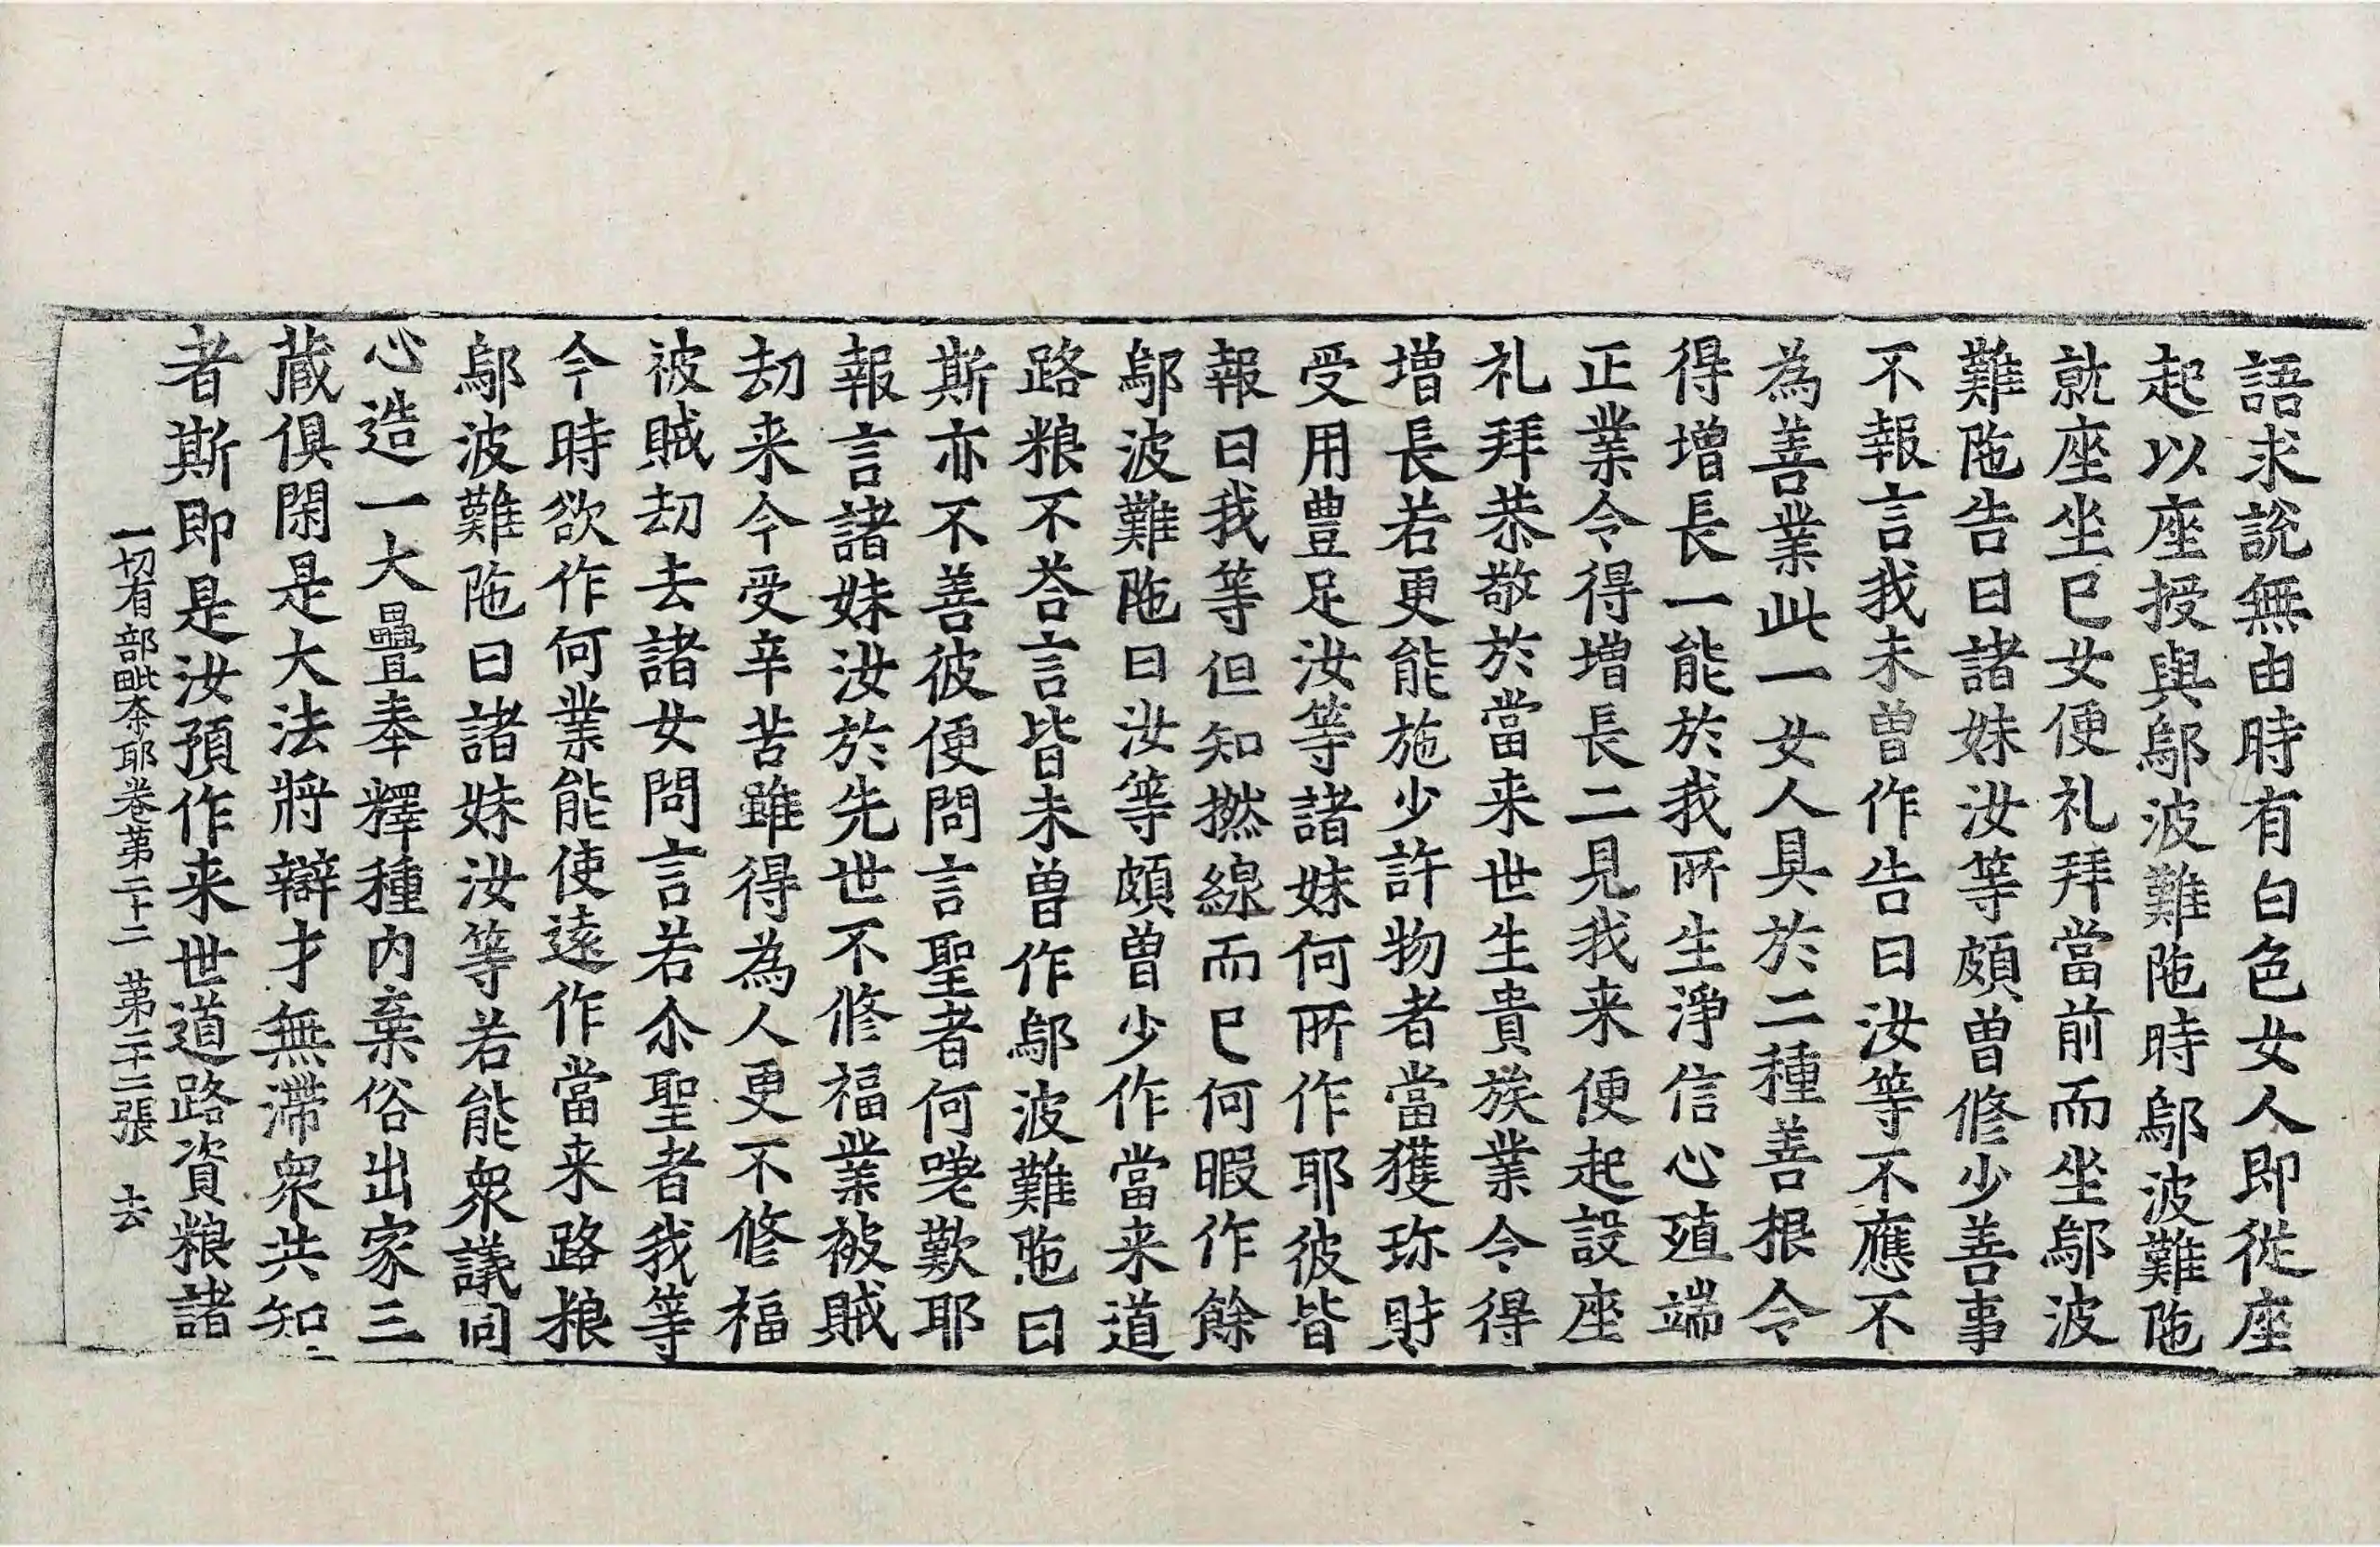 語求説無由時有白色女人即從座
起以座授與鄔波難陁時鄔波難陁
就座坐已女便礼拜當前而坐鄔波
難陁告曰諸妹汝等頗曾修少善事
不報言我未曾作告曰汝等不應不
為善業此一女人具於二種善根令
得增長一能於我所生淨信心殖端
正業令得增長二見我来便起設座
礼拜恭敬於當来世生貴族業令得
增長若更能施少許物者當獲珎財
受用豊足汝等諸妹何所作耶彼皆
報曰我等但知撚線而已何暇作餘
鄔波難陁曰汝等頗曾少作當来道
路粮不荅言皆未曾作鄔波難陁曰
斯亦不善彼便問言聖者何嗟歎耶
報言諸妹汝於先世不修福業被賊
劫来今受辛苦雖得為人更不修福
被賊劫去諸女問言若尒聖者我等
今時欲作何業能使遠作當来路粮
鄔波難陁曰諸妹汝等若能衆議同
心造一大疊奉釋種内棄俗出家三
藏俱閑是大法將辯才無滯衆共知
者斯即是汝預作来世道路資粮諸
一切有部毗奈耶卷第二十二　第二十二張　去